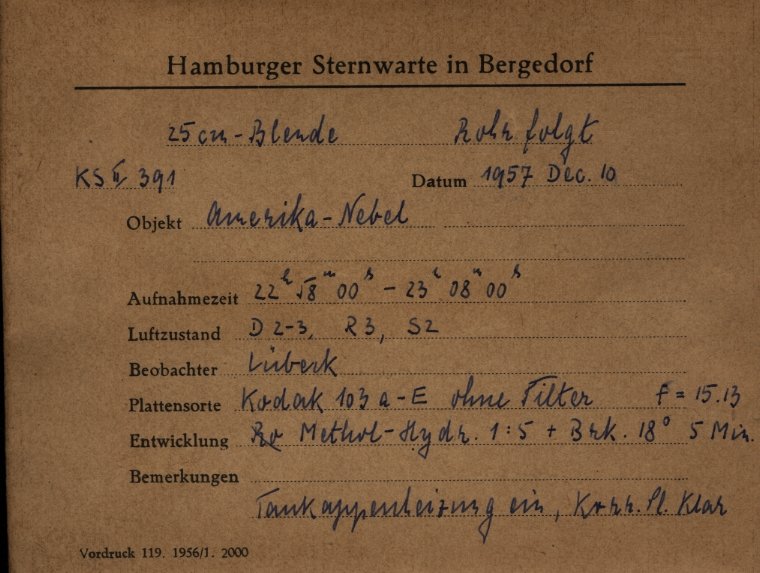 Hamburger Sternwarte in Bergedorf
25cm-Blende Rohr folgt
KS II 391 Datum 1957 Dec. 10
Objekt Amerika-Nebel
Aufnahmezeit 22h 58m 00s - 23h 08m 00s
Luftzustand D 2-3, R 3, S2
Beobachter Lübeck
Plattensorte Kodak 103 a-E ohne Filter f = 15.13
Entwicklung Methol-Hydr. 1:5 + Brk. 18° 5 Min.
Bemerkungen
ein, Korr. Pl. klar
Vordruck 119. 1956/1. 2000